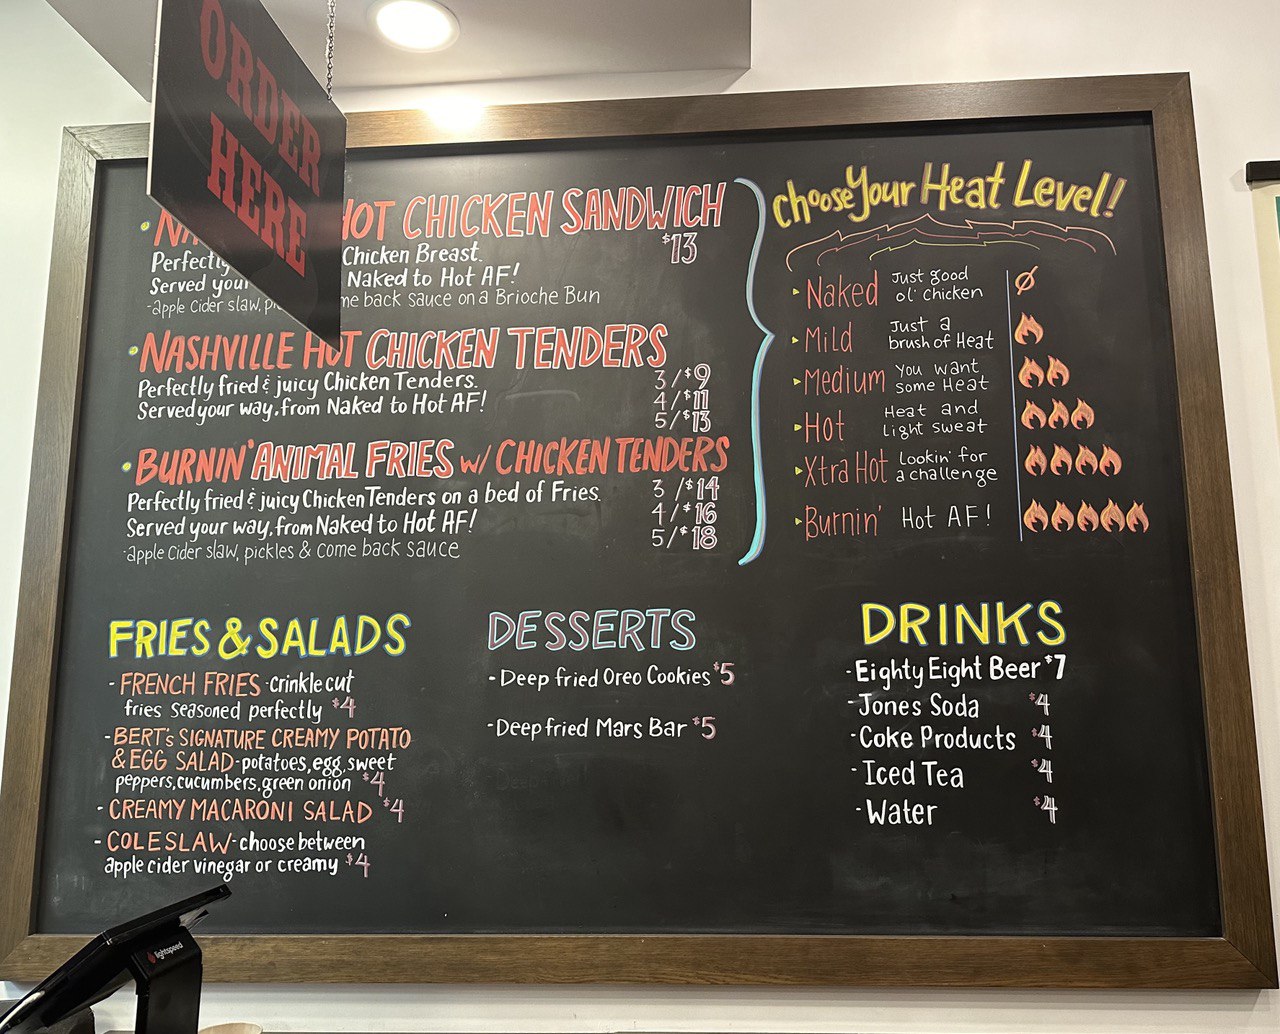 ORDER
HERE
HOT CHICKEN SANDWICH
Chicken Breast. $13
Served Naked to Hot AF!
-apple Cider slaw, me back sauce on a Brioche Bun
• NASHVILLE HOT CHICKEN TENDERS
Perfectly fried & juicy Chicken Tenders. 3/$9
Served your way, from Naked to Hot AF! 4/$11
5/$13
• BURNIN' ANIMAL FRIES w/ CHICKEN TENDERS
Perfectly fried & juicy Chicken Tenders on a bed of Fries. 3/$14
Served your way, from Naked to Hot AF! 4/$16
-apple Cider slaw, pickles & come back sauce 5/$18
Choose Your Heat Level!
Naked Just good
ol' Chicken
Mild Just a
brush of Heat
Medium You want
some Heat
Hot Heat and
Light sweat
Xtra Hot Lookin' for
a challenge
Burnin' Hot AF!
FRIES & SALADS
- FRENCH FRIES - crinkle cut
fries seasoned perfectly $4
- BERT's SIGNATURE CREAMY POTATO
& EGG SALAD - potatoes, egg, sweet
peppers, cucumbers, green onion $4
- CREAMY MACARONI SALAD $4
- COLESLAW - choose between
apple cider vinegar or creamy $4
DESSERTS
- Deep fried Oreo Cookies $5
- Deep fried Mars Bar $5
DRINKS
- Eighty Eight Beer $7
- Jones Soda $4
- Coke Products $4
- Iced Tea $4
- Water $4
lightspeed